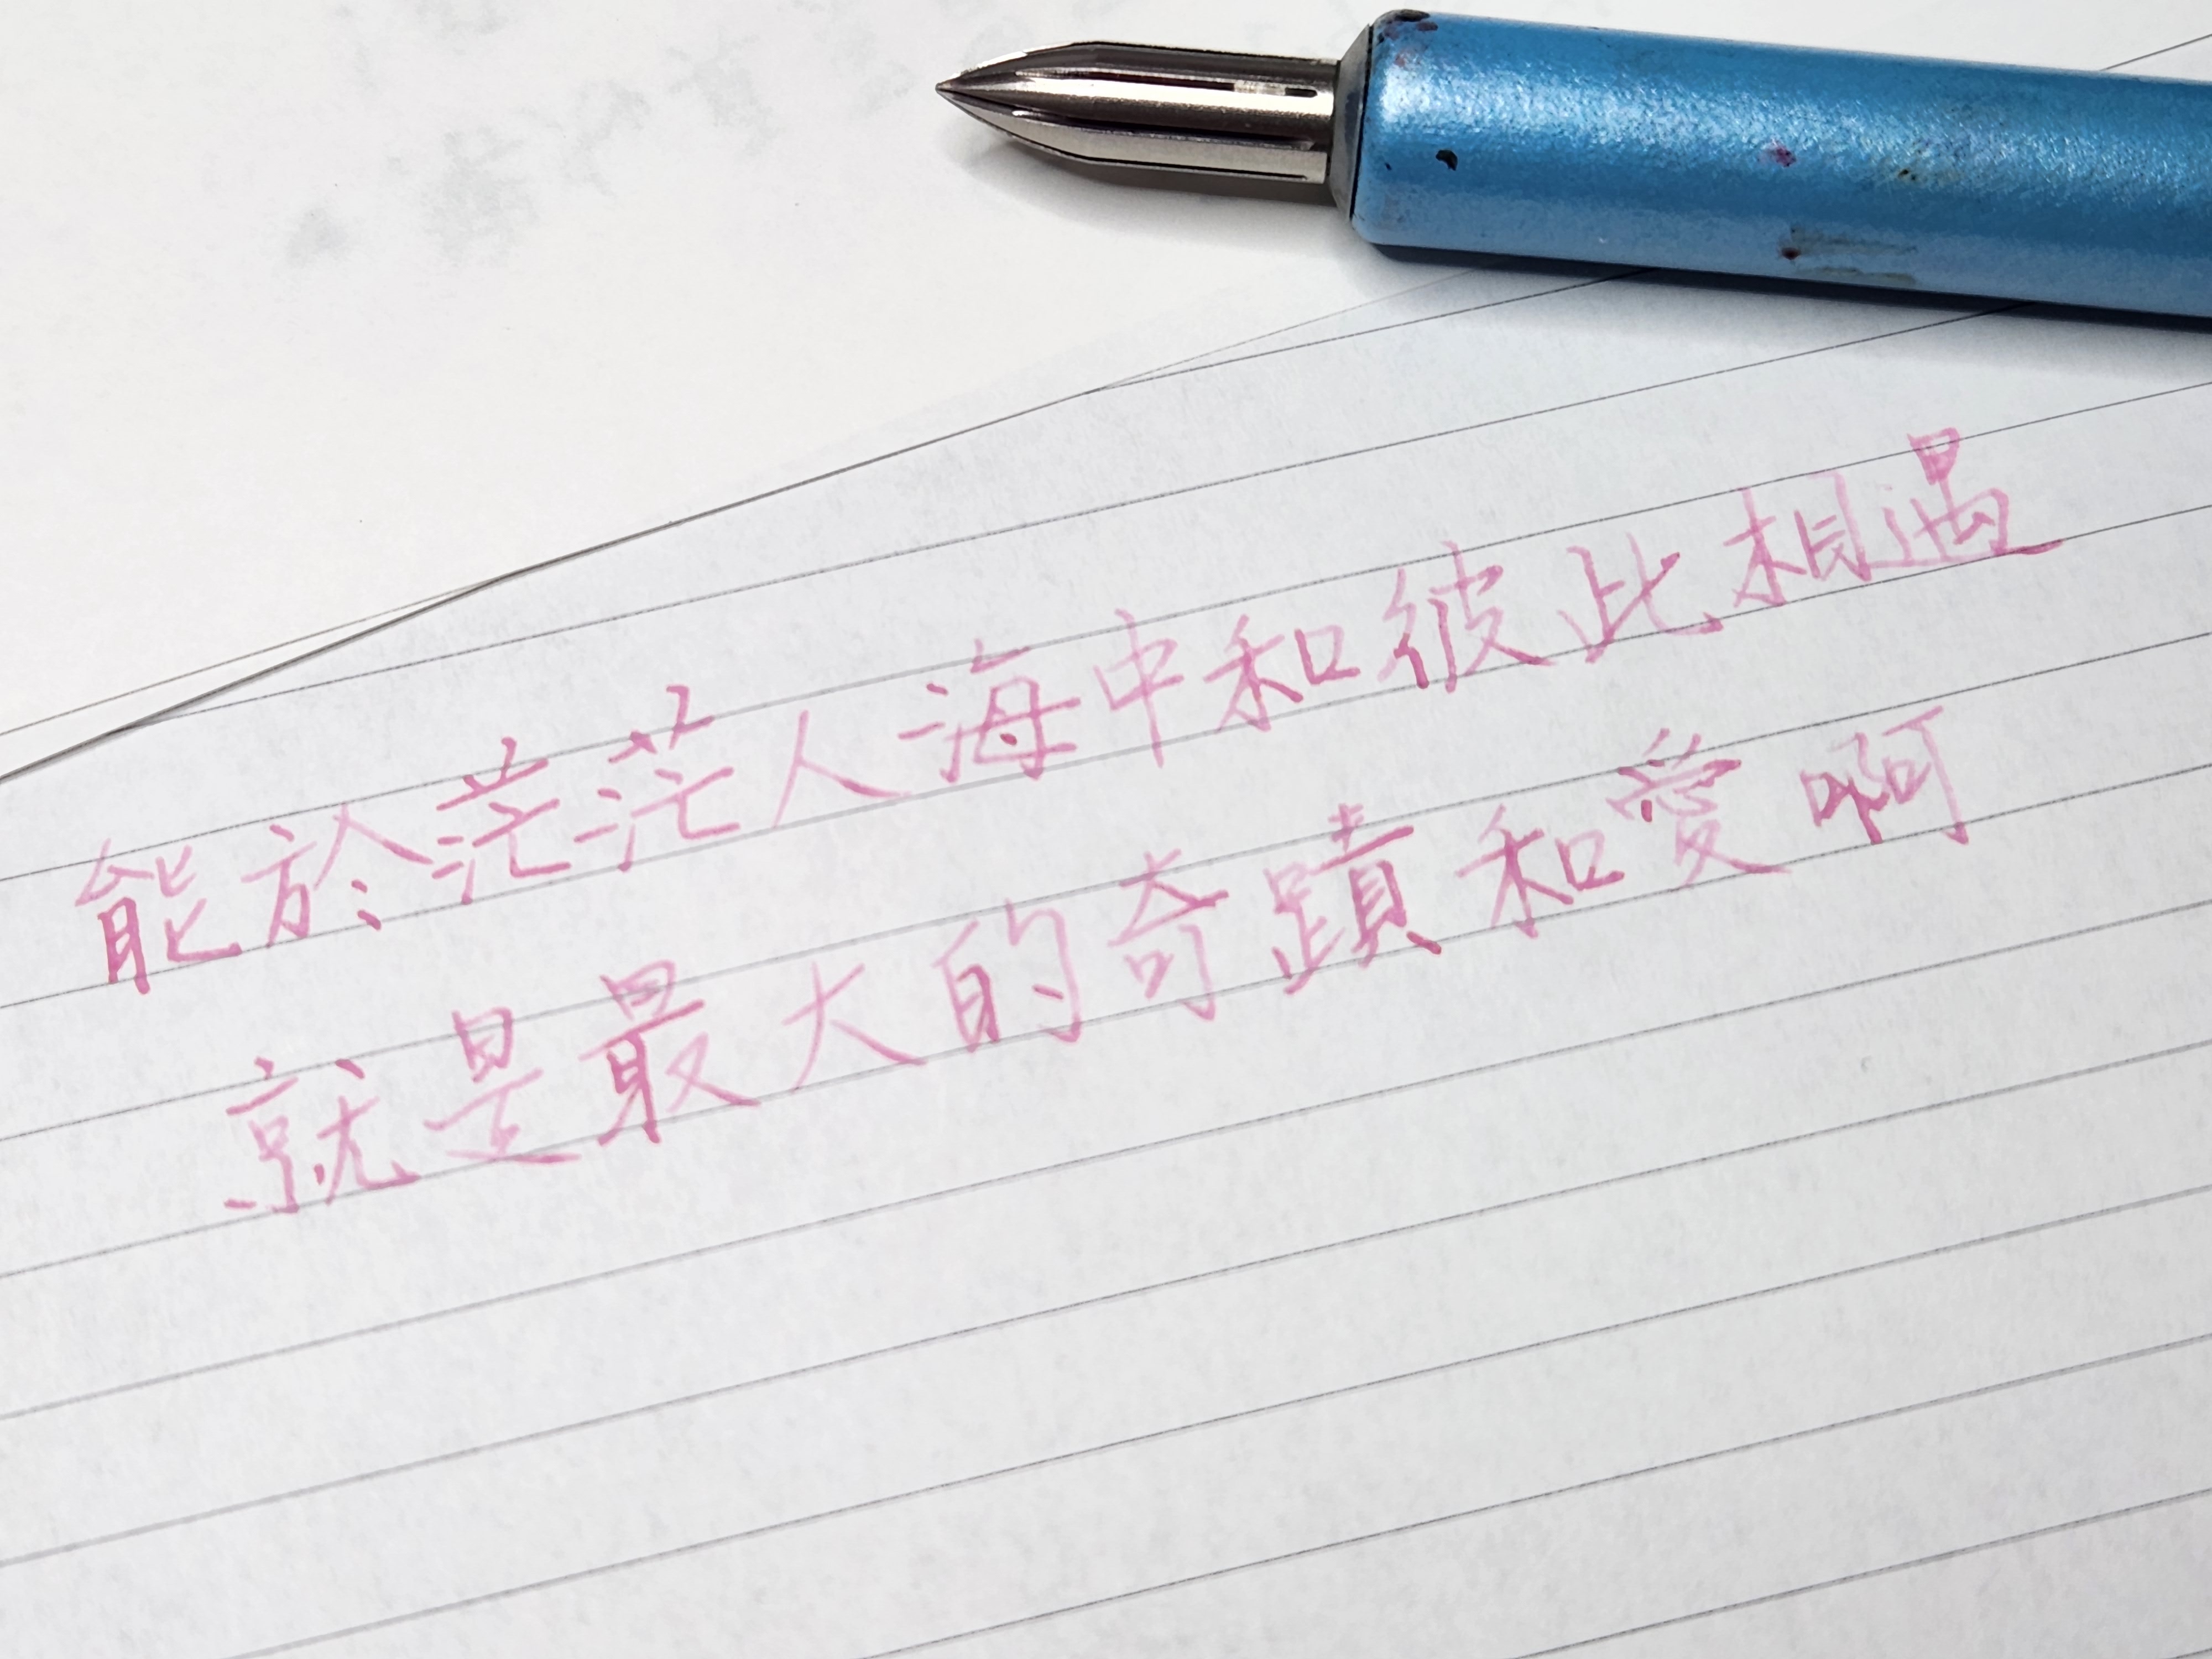 能於茫茫人海中和彼此相遇
就是最大的奇蹟和愛啊